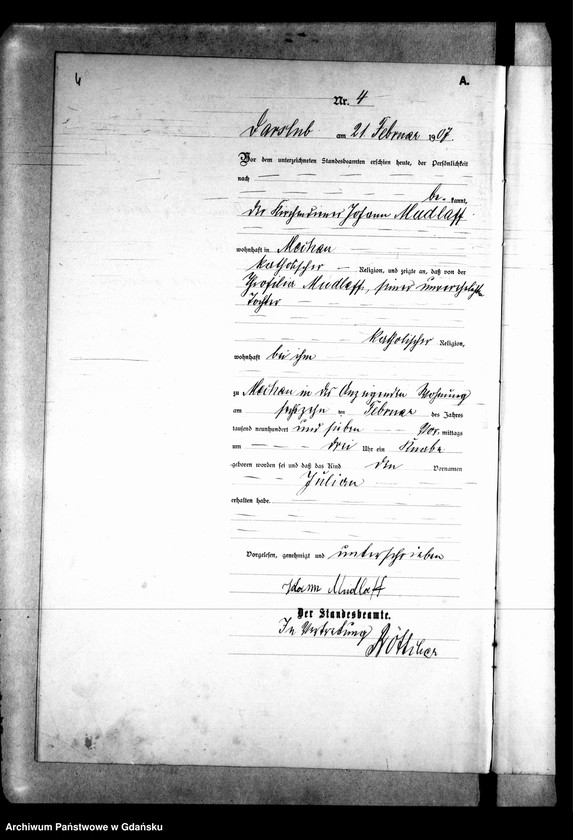 A.
Nr. 4
Darslub am 21 Februar 1907.
Vor dem unterzeichneten Standesbeamten erschien heute, der Persönlichkeit
nach
be- kannt,
der Johann Mudlaff
wohnhaft in Mechau
katholischer Religion, und zeigte an, daß von der
Mudlaff, seiner unverehelichten
Tochter
katholischer Religion,
wohnhaft bei ihm
zu Mechau in des Anzeigenden Wohnung
am sechszehn ten Februar des Jahres
tausend neunhundert und sieben Vor mittags
um drei Uhr ein Knabe
geboren worden sei und daß das Kind den Vornamen
Julian
erhalten habe.
Vorgelesen, genehmigt und unterschrieben
Johann Mudlaff
Der Standesbeamte.
In Vertretung
Archiwum Państwowe w Gdańsku